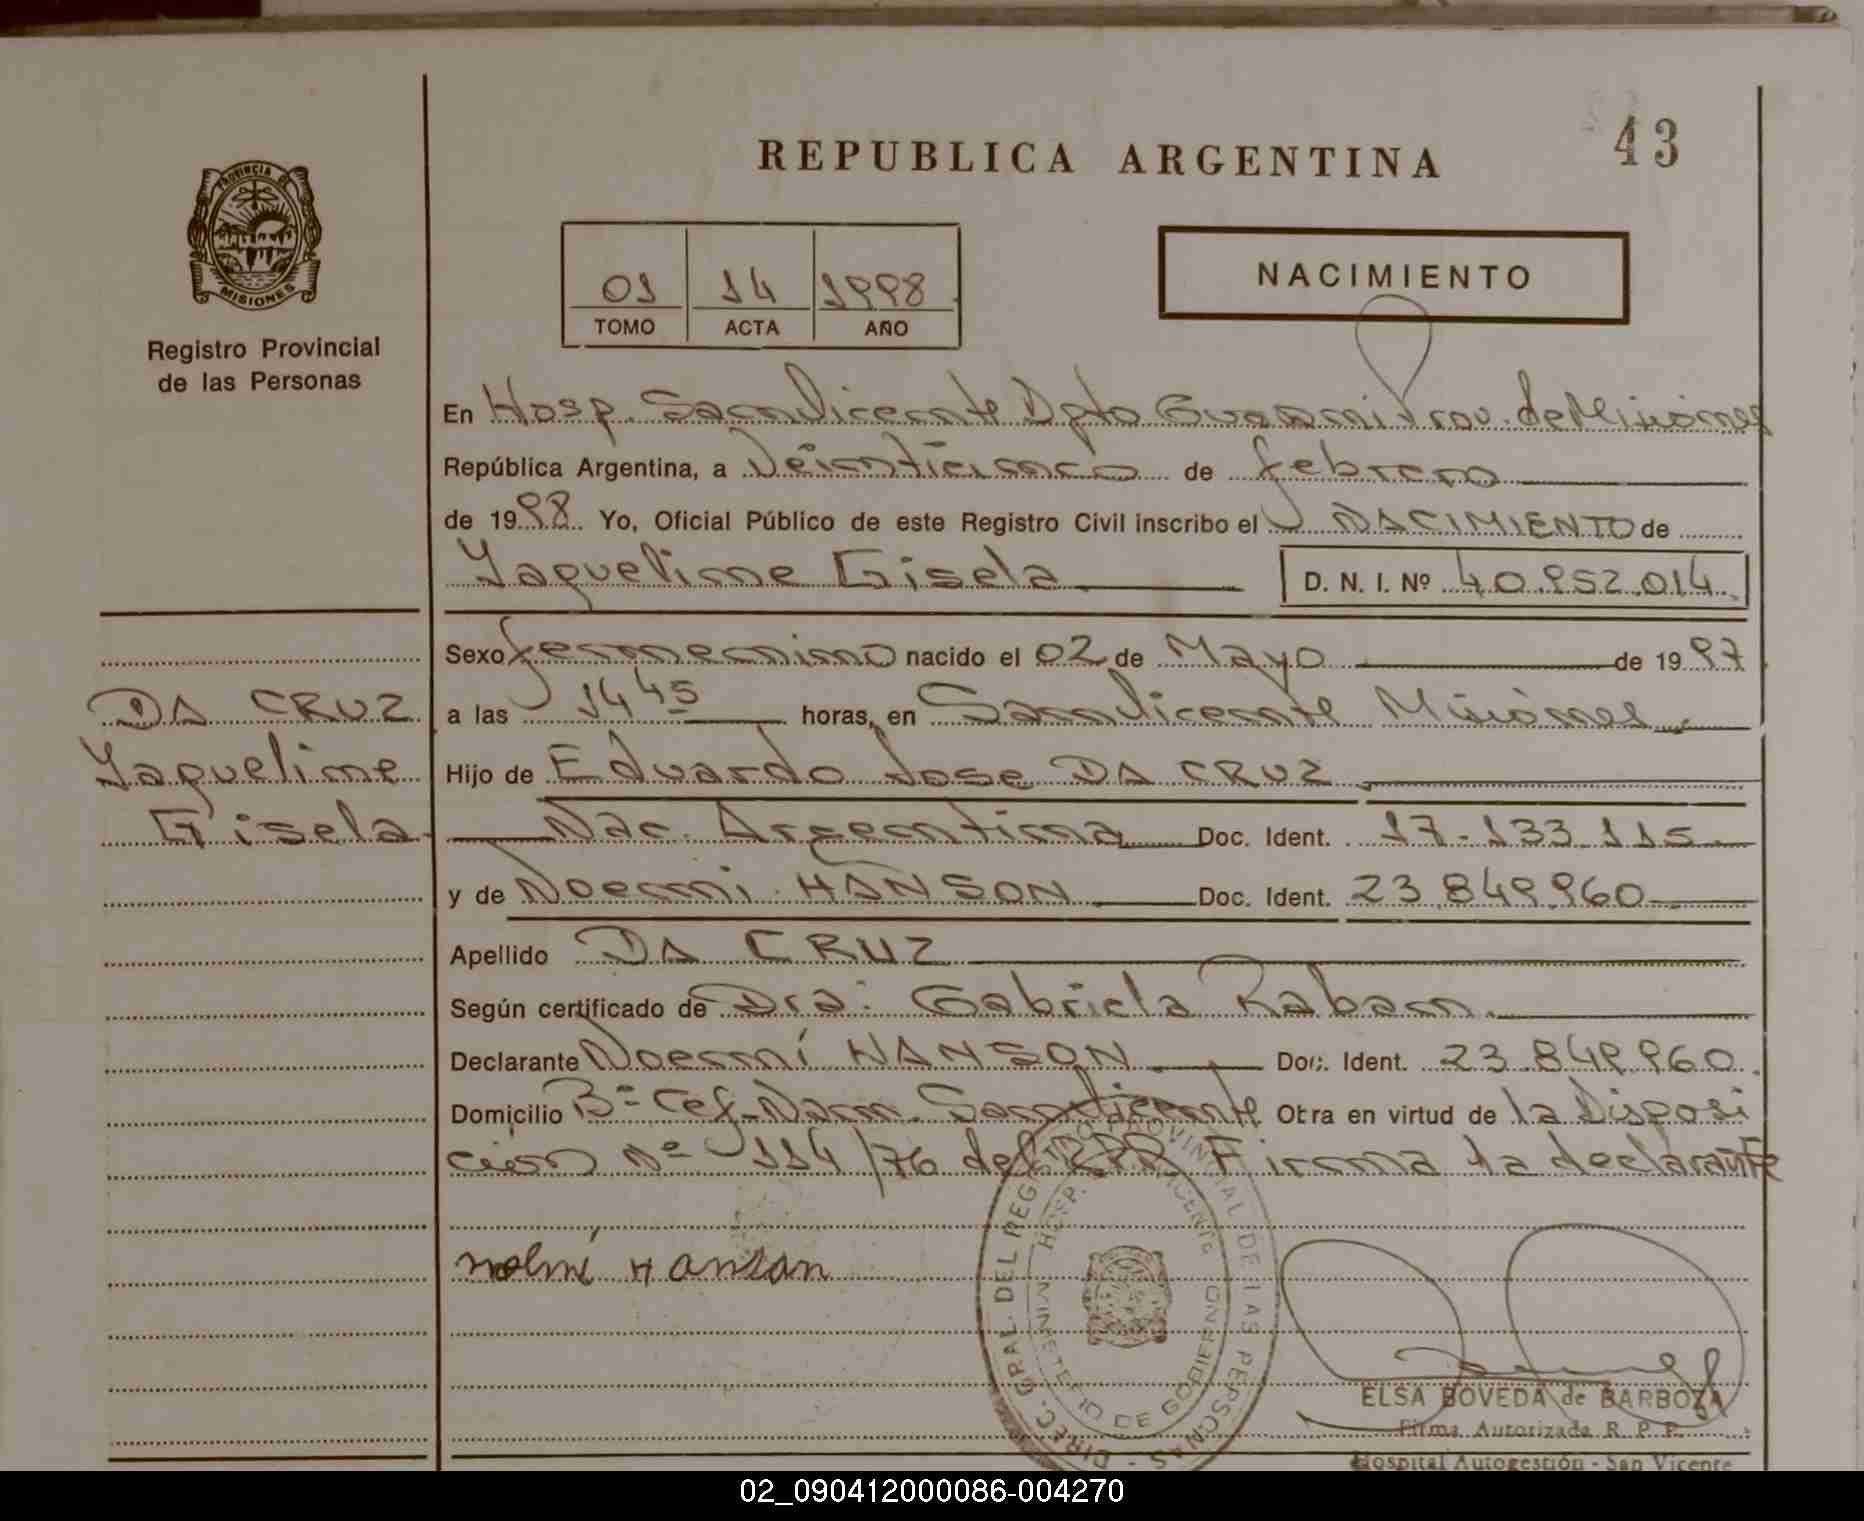 43
REPUBLICA ARGENTINA
PROVINCIA DE
MISIONES
Registro Provincial
de las Personas
01 14 1998
TOMO ACTA AÑO
NACIMIENTO
En Hosp. San Vicente Dpto Guarani Prov. de Misiones
República Argentina, a Veinticinco de febrero
de 1998 Yo, Oficial Público de este Registro Civil inscribo el NACIMIENTO de
Yaqueline Gisela D. N. I. Nº 40.952.014
Sexo femenino nacido el 02 de Mayo de 1997
DA CRUZ
Yaqueline
Gisela
a las 14 45 horas, en San Vicente Misiones
Hijo de Eduardo Jose DA CRUZ
Nac. Argentina Doc. Ident. 17-133.115
y de Noemi HANSON Doc. Ident. 23.849.960
Apellido DA CRUZ
Según certificado de Dra: Gabriela Raban
Declarante Noemí HANSON Doc. Ident. 23.849.960
Domicilio San Vicente Otra en virtud de la Disposi
cion Nº 114/76 del RPP. Firma la declarante
noemí Hanson
DIREC. GRAL. DEL REGISTRO PROVINCIAL DE LAS PERSONAS -
HOSP. SAN VICENTE
MINISTERIO DE GOBIERNO
ELSA BOVEDA de BARBOZA
Firma Autorizada R. P. P.
Hospital Autogestión - San Vicente
02_090412000086-004270